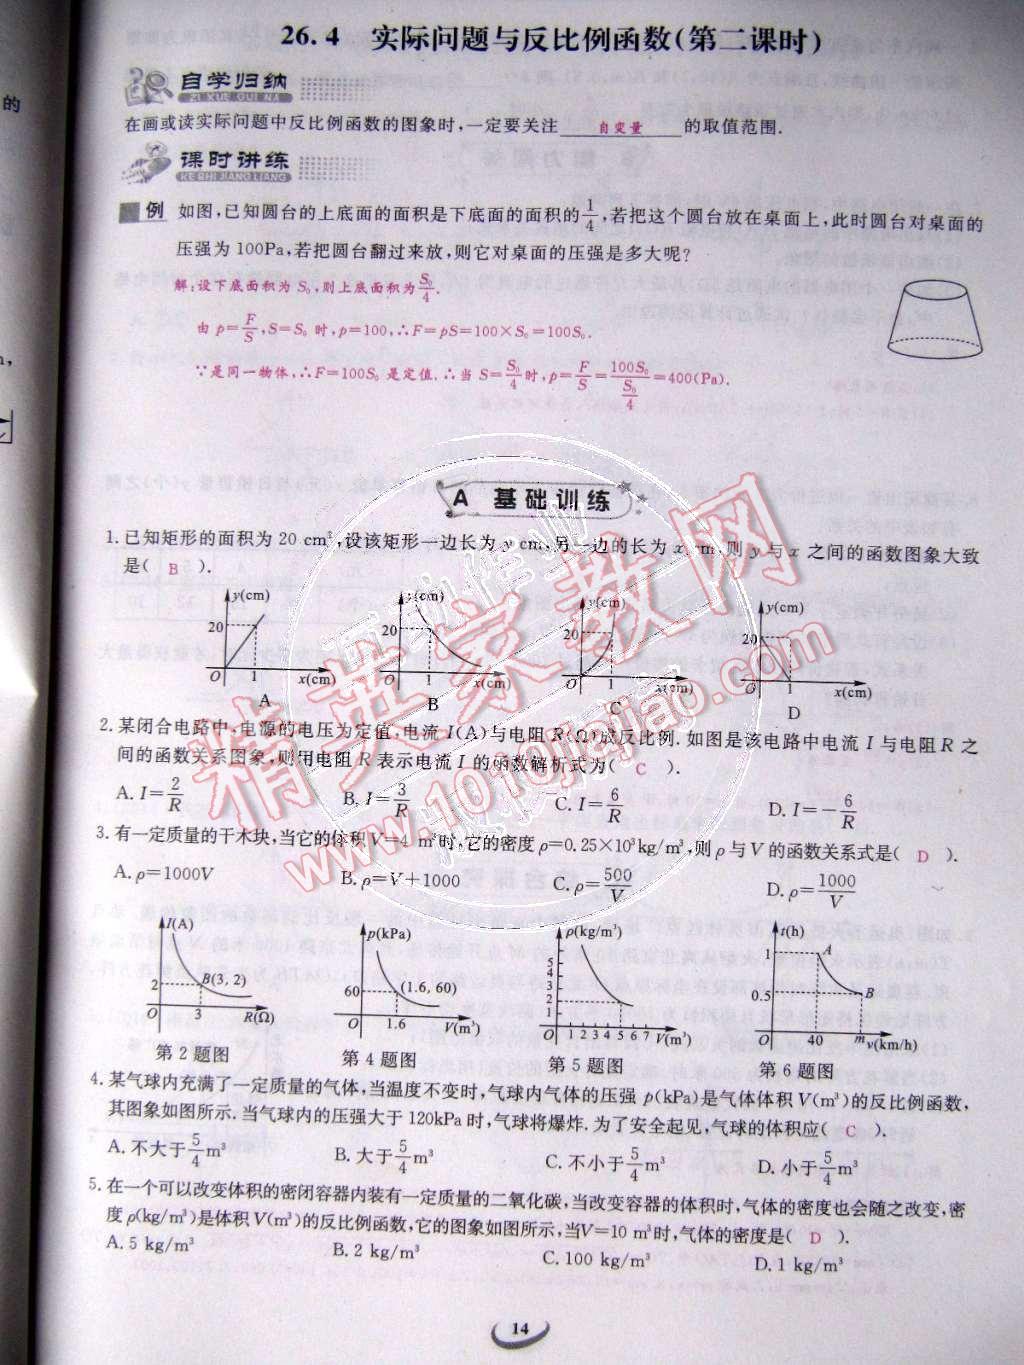 的
26.4 实际问题与反比例函数(第二课时)
自学归纳
ZI XUE GUI NA
在画或读实际问题中反比例函数的图象时,一定要关注 自变量 的取值范围.
课时讲练
KE SHI JIANG LIANG
例 如图,已知圆台的上底面的面积是下底面的面积的1/4,若把这个圆台放在桌面上,此时圆台对桌面的
压强为 100Pa,若把圆台翻过来放,则它对桌面的压强是多大呢?
解:设下底面积为 S₀,则上底面积为S₀/4.
由 p=F/S,S=S₀ 时,p=100,∴F=pS=100×S₀=100S₀.
∵是同一物体,∴F=100S₀ 是定值.∴当 S=S₀/4时,p=F/S=100S₀/(S₀/4)=400(Pa).
A 基础训练
1.已知矩形的面积为 20 cm²,设该矩形一边长为 y cm,另一边的长为 x cm,则 y 与 x 之间的函数图象大致
是( B ).
y(cm) 20 O 1 x(cm) A
y(cm) 20 O 1 x(cm) B
y(cm) 20 O 1 x(cm) C
y(cm) 20 O 1 x(cm) D
2.某闭合电路中,电源的电压为定值,电流 I(A)与电阻 R(Ω)成反比例.如图是该电路中电流 I 与电阻 R 之
间的函数关系图象,则用电阻 R 表示电流 I 的函数解析式为( C ).
A.I=2/R B.I=3/R C.I=6/R D.I=-6/R
3.有一定质量的干木块,当它的体积 V=4 m³时,它的密度 ρ=0.25×10³kg/m³,则 ρ 与 V 的函数关系式是( D ).
A.ρ=1000V B.ρ=V+1000 C.ρ=500/V D.ρ=1000/V
I(A) 2 B(3,2) O 3 R(Ω)
第 2 题图
p(kPa) 60 (1.6,60) O 1.6 V(m³)
第 4 题图
ρ(kg/m³) 5 4 3 2 1 O 1 2 3 4 5 6 7 V(m³)
第 5 题图
t(h) 1 A 0.5 B O 40 m v(km/h)
第 6 题图
4.某气球内充满了一定质量的气体,当温度不变时,气球内气体的压强 p(kPa)是气体体积 V(m³)的反比例函数,
其图象如图所示.当气球内的压强大于 120kPa 时,气球将爆炸.为了安全起见,气球的体积应( C ).
A.不大于5/4m³ B.大于5/4m³ C.不小于5/4m³ D.小于5/4m³
5.在一个可以改变体积的密闭容器内装有一定质量的二氧化碳,当改变容器的体积时,气体的密度也会随之改变,密
度 ρ(kg/m³)是体积 V(m³)的反比例函数,它的图象如图所示,当V=10 m³时,气体的密度是( D ).
A.5 kg/m³ B.2 kg/m³ C.100 kg/m³ D.1 kg/m³
14
精英家教网
www.1010jiajiao.com